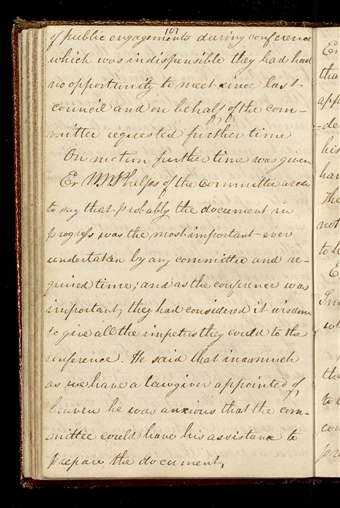 107
of public engagements during conference
which was indispensible they had had
no opportunity to meet since last
council and on behalf of the com-
mittee requested further time
On motion further time was given
Er W. W. Phelps of the committee arose
to say that probably the document in
progress was the most important ever
undertaken by any committee and re-
quired time; and as the conference was
important, they had considered it wisdom
to give all the impetus they could to the
conference. He said that inasmuch
as we have a lawgiver appointed of
heaven he was anxious that the com-
mittee could have his assistance to
prepare the document,
Er
tha
app
-de
his
hav
The
not
to
E
the
to
co
pr